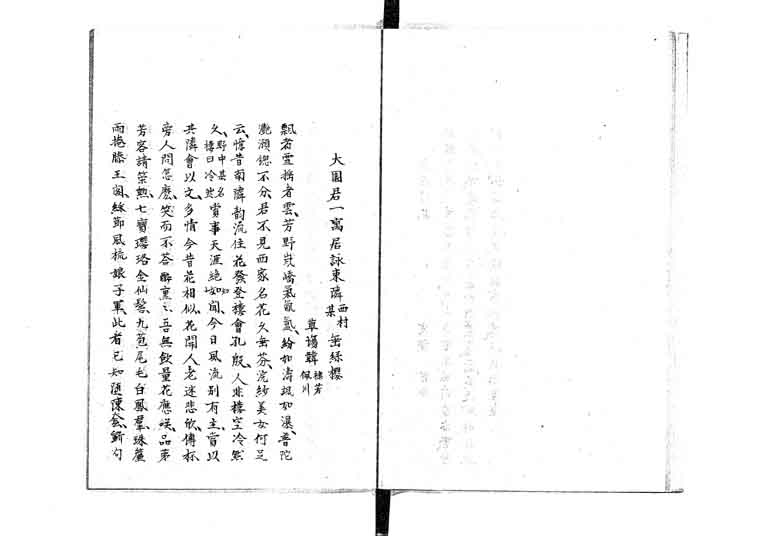 大園君一寓居詠東隣西村某垂絲櫻
草場韡棣芳佩川
飄者雪搖者雲芳野嵐嶠氣氤氳紛如濤颯如瀑普陀
灔澦偲不分君不見西家名花久無芬浣紗美女何足
云憶昔南隣韵流住花發登樓會孔殷人非樓空冷然
久野中某名樓曰冷然賞事天涯絕知聞今日風流別有主嘗以
共隣會以文多情今昔花相似花開人老迷悲欣傳杯
旁人問怎麽笑而不答醉熏々吾無飲量花應咲品第
芳容請策勲七寶瓔珞金仙鬘九苞尾毛白鳳羣珠簾
雨捲滕王閣綵節風梳娘子軍此者已知隨陳套新句